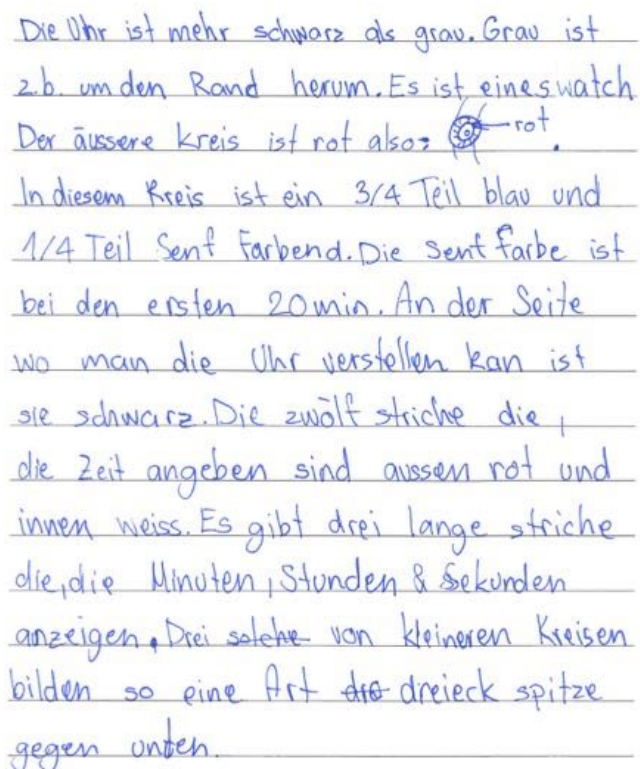 Die Uhr ist mehr schwarz als grau. Grau ist
z.b. um den Rand herum. Es ist eine swatch
Der äussere Kreis ist rot also: rot.
In diesem Kreis ist ein 3/4 Teil blau und
1/4 Teil Senf Farbend. Die Senf farbe ist
bei den ersten 20 min. An der Seite
wo man die Uhr verstellen kan ist
sie schwarz. Die zwölf striche die,
die Zeit angeben sind aussen rot und
innen weiss. Es gibt drei lange striche
die, die Minuten, Stunden & Sekunden
anzeigen. Drei solche von kleineren Kreisen
bilden so eine Art dre dreieck spitze
gegen unten.